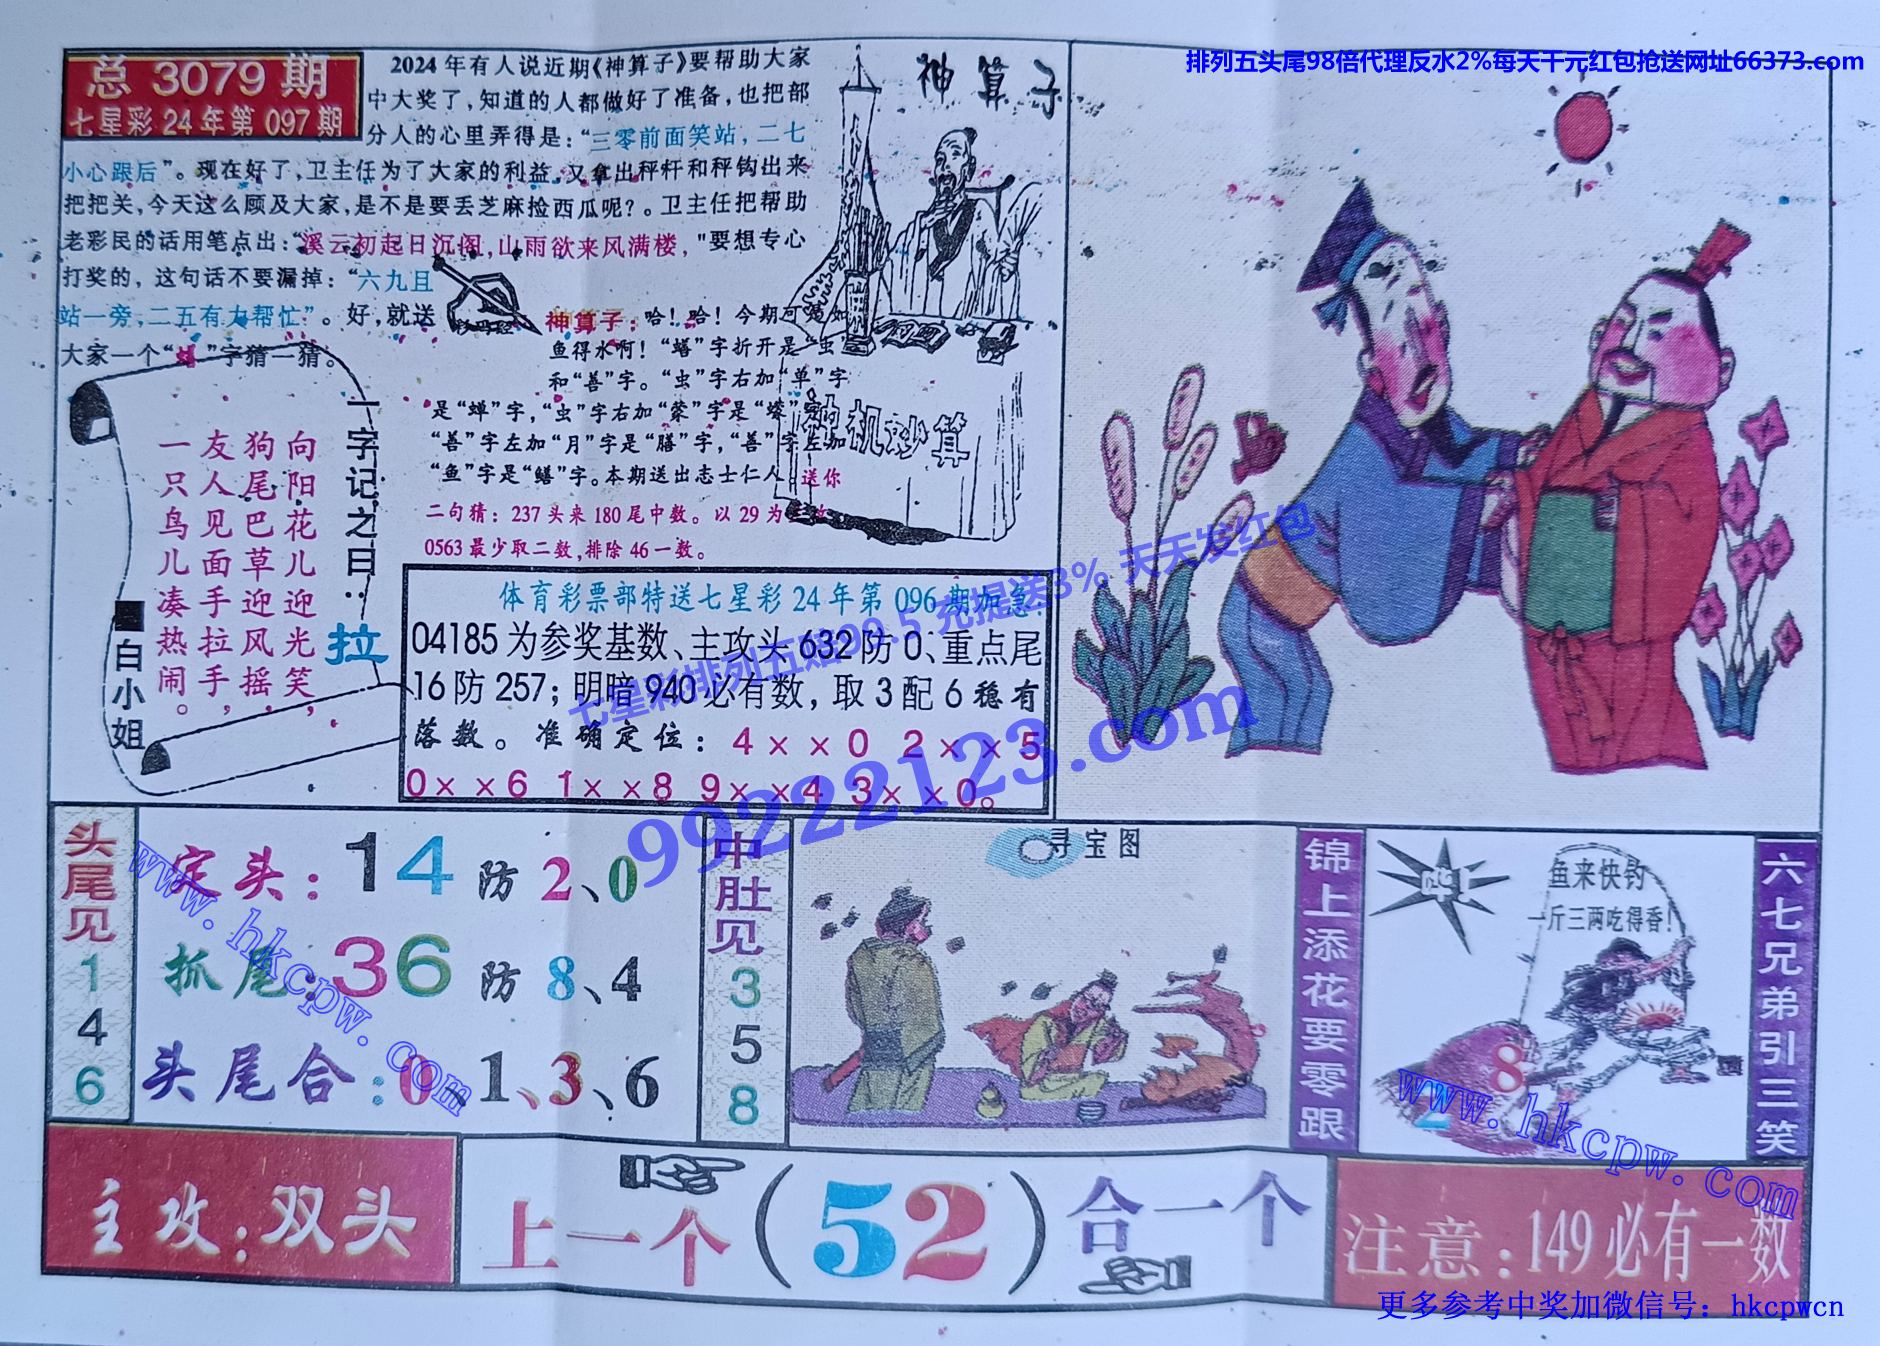 排列五头尾98倍代理反水2%每天千元红包抢送网址66373.com
总 3079 期
七星彩 24 年第 097 期
2024 年有人说近期《神算子》要帮助大家
中大奖了，知道的人都做好了准备，也把部
分人的心里弄得是：“三零前面笑站，二七
小心跟后”。现在好了，卫主任为了大家的利益，又拿出秤杆和秤钩出来
把把关，今天这么顾及大家，是不是要丢芝麻捡西瓜呢？。卫主任把帮助
老彩民的话用笔点出：“溪云初起日沉阁，山雨欲来风满楼，”要想专心
打奖的，这句话不要漏掉：“六九且
站一旁，二五有力帮忙”。好，就送
大家一个“ ”字猜一猜。
神算子
神算子：哈！哈！今期可 如
鱼得水啊！“蟮”字折开是“虫”
和“善”字。“虫”字右加“单”字
是“蝉”字，“虫”字右加“ ”字是“ ”
“善”字左加“月”字是“膳”字，“善”字左加
“鱼”字是“鳝”字。本期送出志士仁人 送你
二句猜：237 头来 180 尾中数。以 29 为
0563 最少取二数，排除 46 一数。
神机妙算
一字记之曰：
拉
向阳花儿迎光笑，
狗尾巴草迎风摇，
友人见面手拉手，
一只鸟儿凑热闹。
■白小姐
体育彩票部特送七星彩 24 年第 096 期加急：
04185 为参奖基数、主攻头 632 防 0、重点尾
16 防 257；明暗 940 必有数，取 3 配 6 稳有
落数。准确定位：4××0 2××5
0××6 1××8 9××4 3××0。
七星彩排列五赔99.5 充提送3% 天天发红包
99222123.com
头尾见
1
4
6
定头：14 防 2、0
抓尾：36 防 8、4
头尾合：0、1、3、6
www.hkcpw.com
中肚见
3
5
8
寻宝图
锦上添花要零跟
鱼来快钓
一斤三两吃得香！
8
2
六七兄弟引三笑
www.hkcpw.com
主攻：双头
上一个（52）合一个
注意：149 必有一数
更多参考中奖加微信号：hkcpwcn